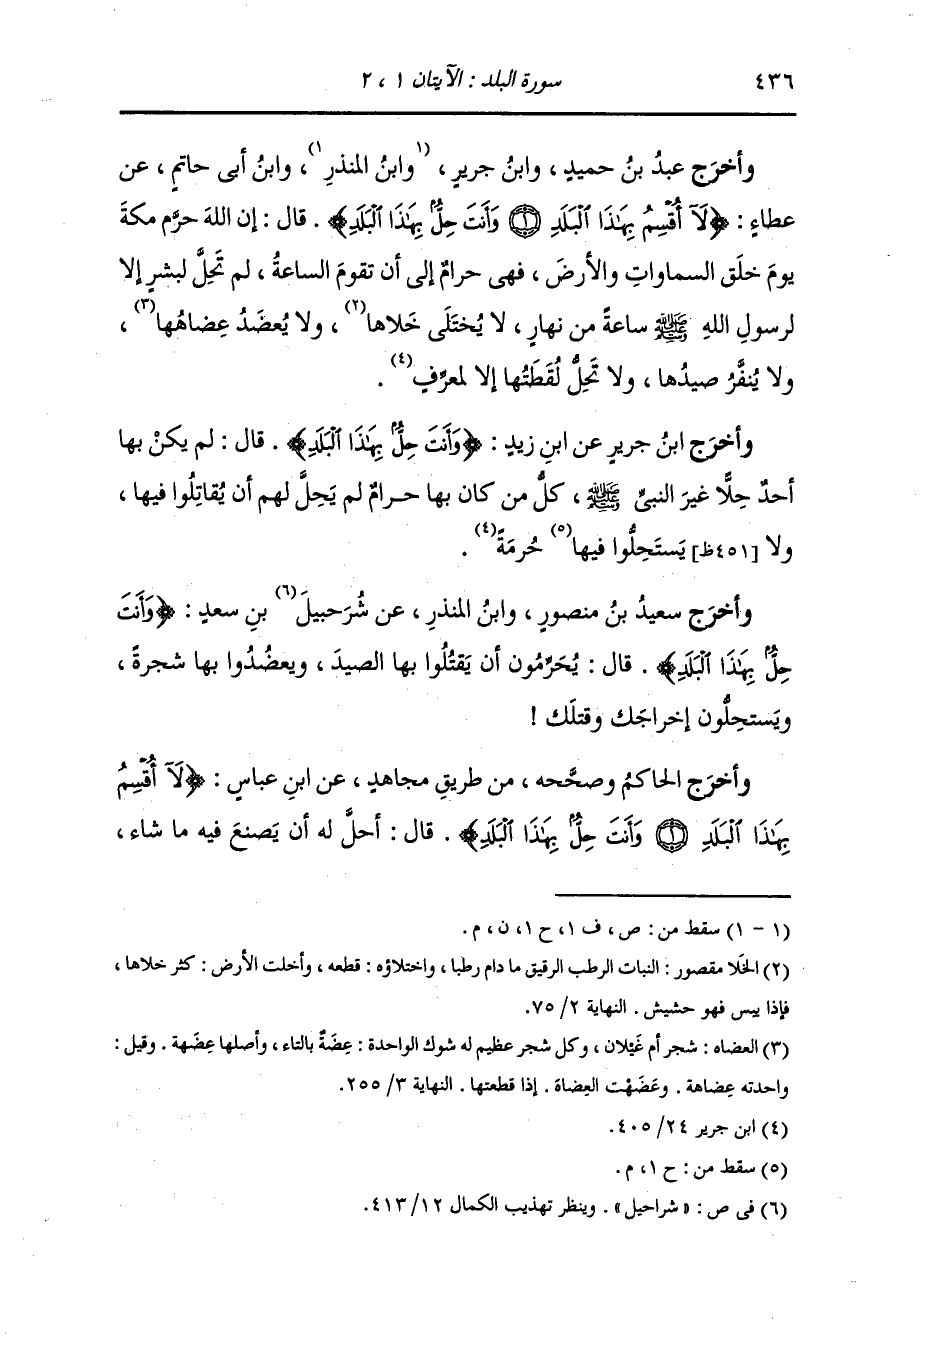 ٤٣٦ سورة البلد : الآيتان ١ ، ٢
وأخرَج عبدُ بنُ حميدٍ ، وابنُ جريرٍ ، (١وابنُ المنذرِ١) ، وابنُ أبى حاتمٍ ، عن
عطاءٍ : ﴿لَآ أُقْسِمُ بِهَٰذَا ٱلْبَلَدِ ۝١ وَأَنتَ حِلٌّۢ بِهَٰذَا ٱلْبَلَدِ﴾ . قال : إن اللهَ حرَّم مكةَ
يومَ خلَق السماواتِ والأرضَ ، فهى حرامٌ إلى أن تقومَ الساعةُ ، لم تَحِلَّ لبشرٍ إلا
لرسولِ اللهِ ﷺ ساعةً من نهارٍ ، لا يُختَلَى خَلاها(٢) ، ولا يُعضَدُ عِضاهُها(٣) ،
ولا يُنفَّرُ صيدُها ، ولا تَحِلُّ لُقَطَتُها إلا لمعرِّفٍ(٤) .
وأخرَج ابنُ جريرٍ عن ابنِ زيدٍ : ﴿وَأَنتَ حِلٌّۢ بِهَٰذَا ٱلْبَلَدِ﴾ . قال : لم يكنْ بها
أحدٌ حِلًّا غيرَ النبىِّ ﷺ ، كلُّ من كان بها حرامٌ لم يَحِلَّ لهم أن يُقاتِلُوا فيها ،
ولا [٤٥١ظ] يَستَحِلُّوا فيها(٥) حُرمَةً(٤) .
وأخرَج سعيدُ بنُ منصورٍ ، وابنُ المنذرِ ، عن شُرَحبيلَ(٦) بنِ سعدٍ : ﴿وَأَنتَ
حِلٌّۢ بِهَٰذَا ٱلْبَلَدِ﴾ . قال : يُحَرِّمُون أن يَقتُلُوا بها الصيدَ ، ويعضُدُوا بها شجرةً ،
ويَستحِلُّون إخراجَك وقتلَك !
وأخرَج الحاكمُ وصحَّحه ، من طريقِ مجاهدٍ ، عن ابنِ عباسٍ : ﴿لَآ أُقْسِمُ
بِهَٰذَا ٱلْبَلَدِ ۝١ وَأَنتَ حِلٌّۢ بِهَٰذَا ٱلْبَلَدِ﴾ . قال : أحلَّ له أن يَصنعَ فيه ما شاء ،
(١ - ١) سقط من : ص ، ف ١، ح ١، ن ، م .
(٢) الخَلا مقصور : النبات الرطب الرقيق ما دام رطبا ، واختلاؤه : قطعه ، وأخلت الأرض : كثر خلاها ،
فإذا يبس فهو حشيش . النهاية ٢/ ٧٥.
(٣) العضاه : شجر أم غَيْلان ، وكل شجر عظيم له شوك الواحدة : عِضَةٌ بالتاء ، وأصلها عِضَهة . وقيل :
واحدته عِضاهة . وعَضَهْت العِضاة . إذا قطعتها . النهاية ٣/ ٢٥٥.
(٤) ابن جرير ٢٤/ ٤٠٥.
(٥) سقط من : ح ١، م .
(٦) فى ص : « شراحيل » . وينظر تهذيب الكمال ١٢/ ٤١٣.